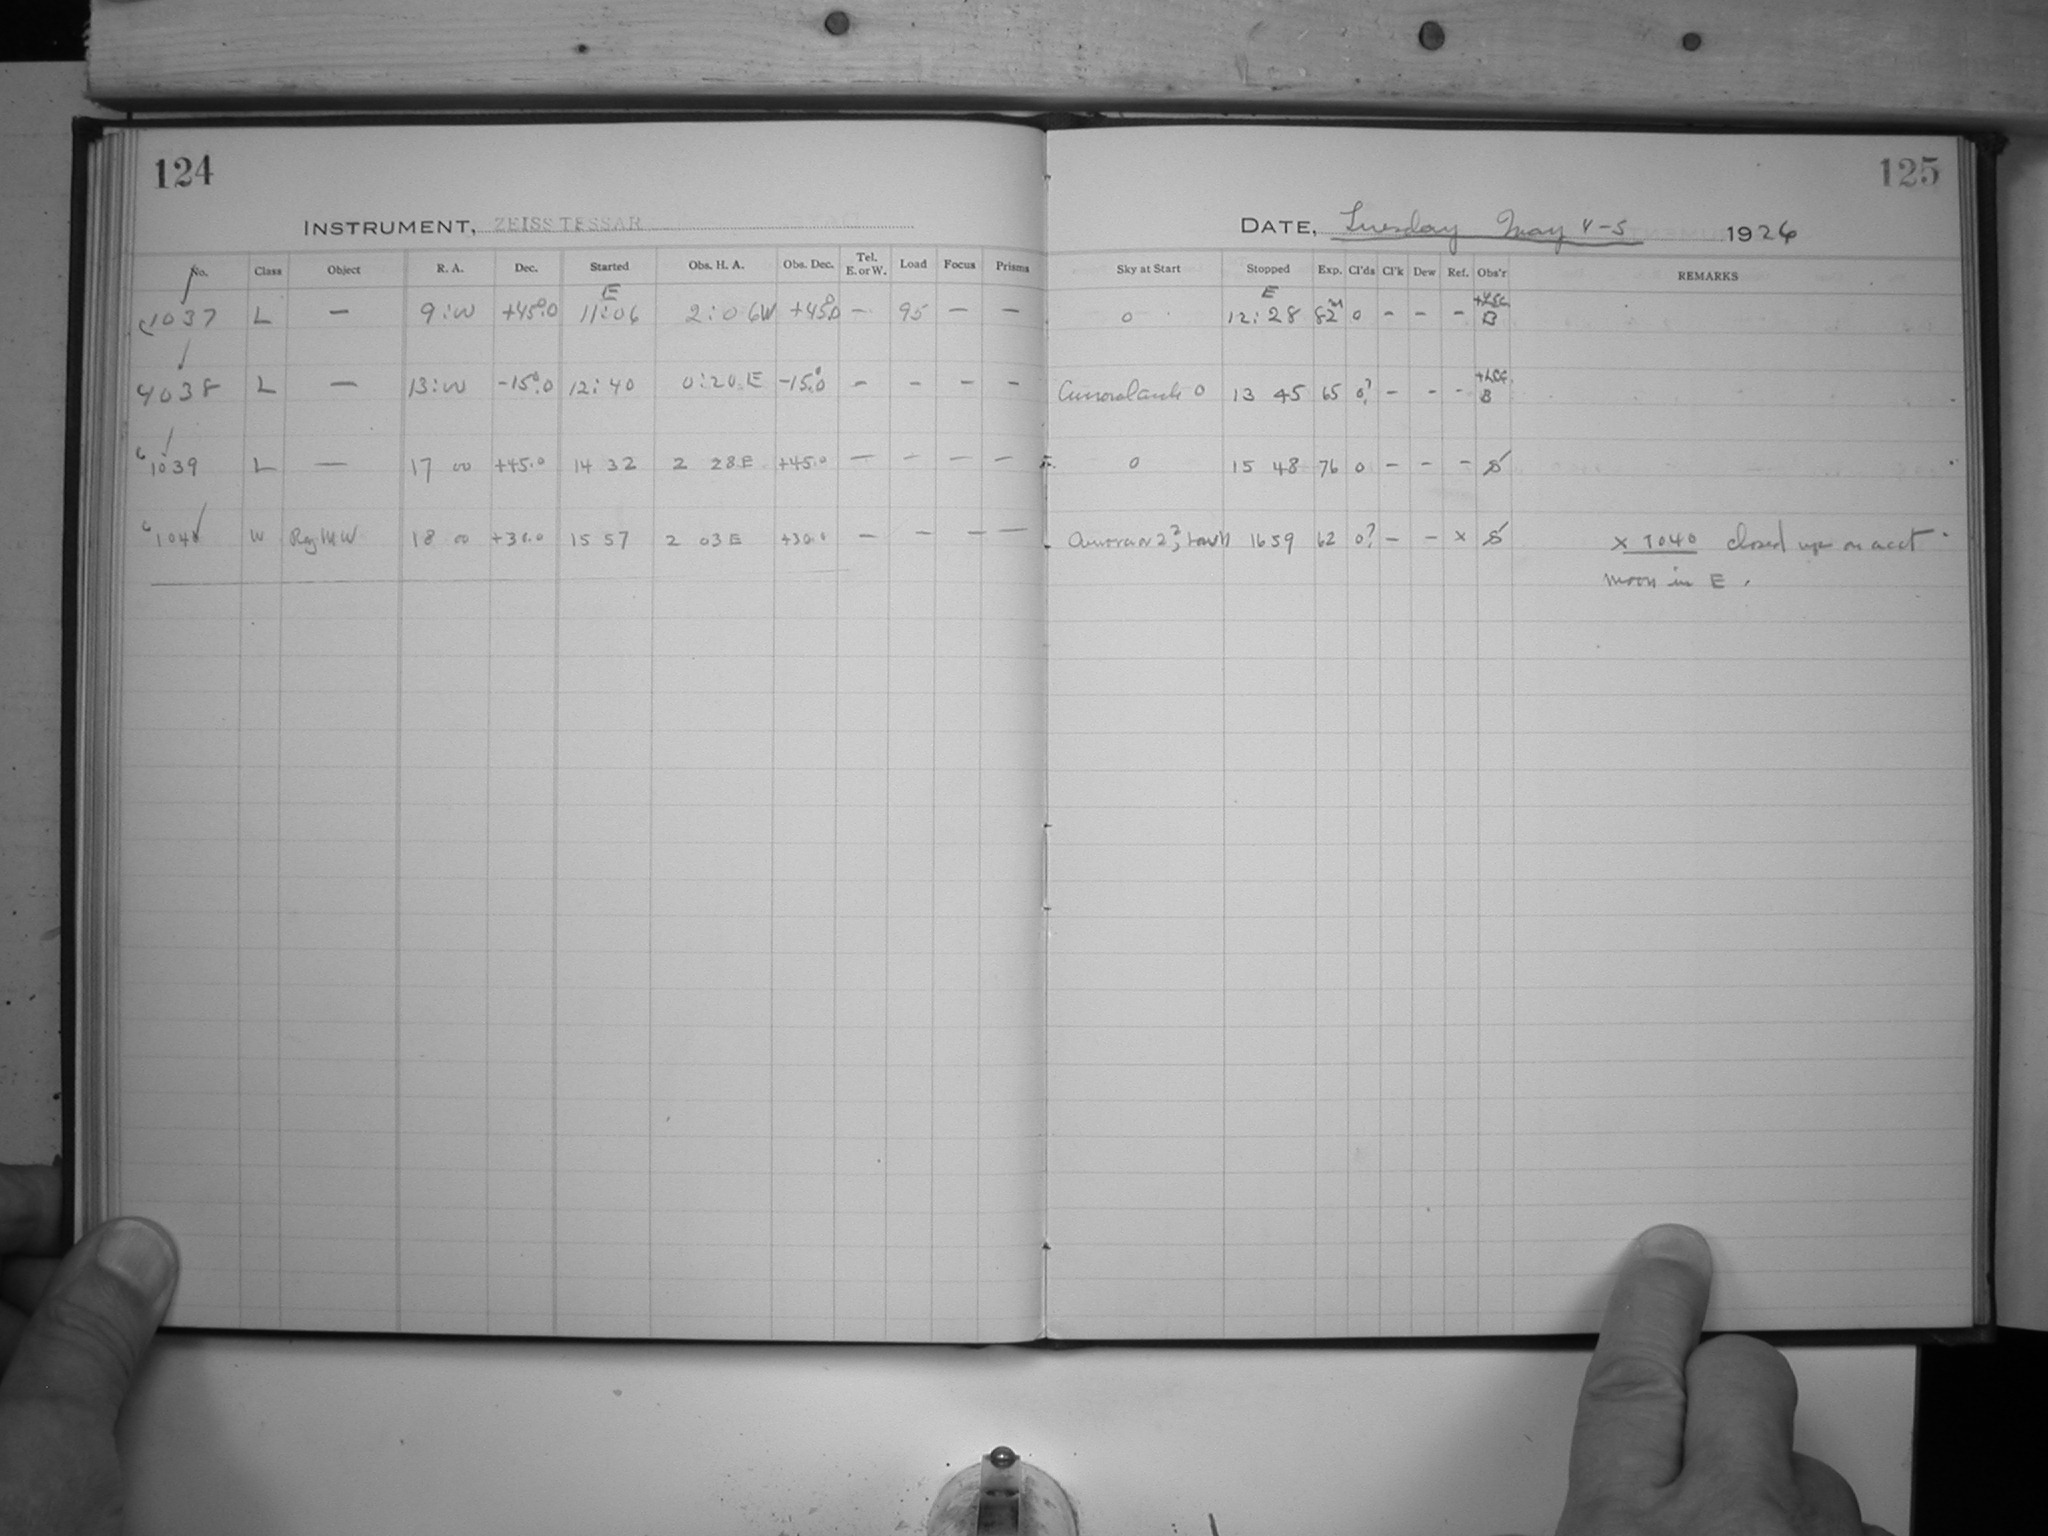 124
125
INSTRUMENT, ZEISS TESSAR
DATE, Tuesday May 4-5 1926
No. Class Object R. A. Dec. Started Obs. H. A. Obs. Dec. Tel. E. or W. Load Focus Prisms Sky at Start Stopped Exp. Cl'ds Cl'k Dew Ref. Obs'r REMARKS
E E
1037 L — 9:00 +45°.0 11:06 2:06W +45°.0 — 95 — — 0 12:28 82m 0 - - - B
1038 L — 13:00 -15°.0 12:40 0:20 E -15°.0 - - - - 0 13 45 65 0? - - - B
1039 L — 17 00 +45.0 14 32 2 28 E +45.0 — - — — 0 15 48 76 0 - - - S
1040 W Reg MW 18 00 +30.0 15 57 2 03 E +30.0 — — — — 16 59 62 0? - - x S x 1040 closed up on acct
moon in E.